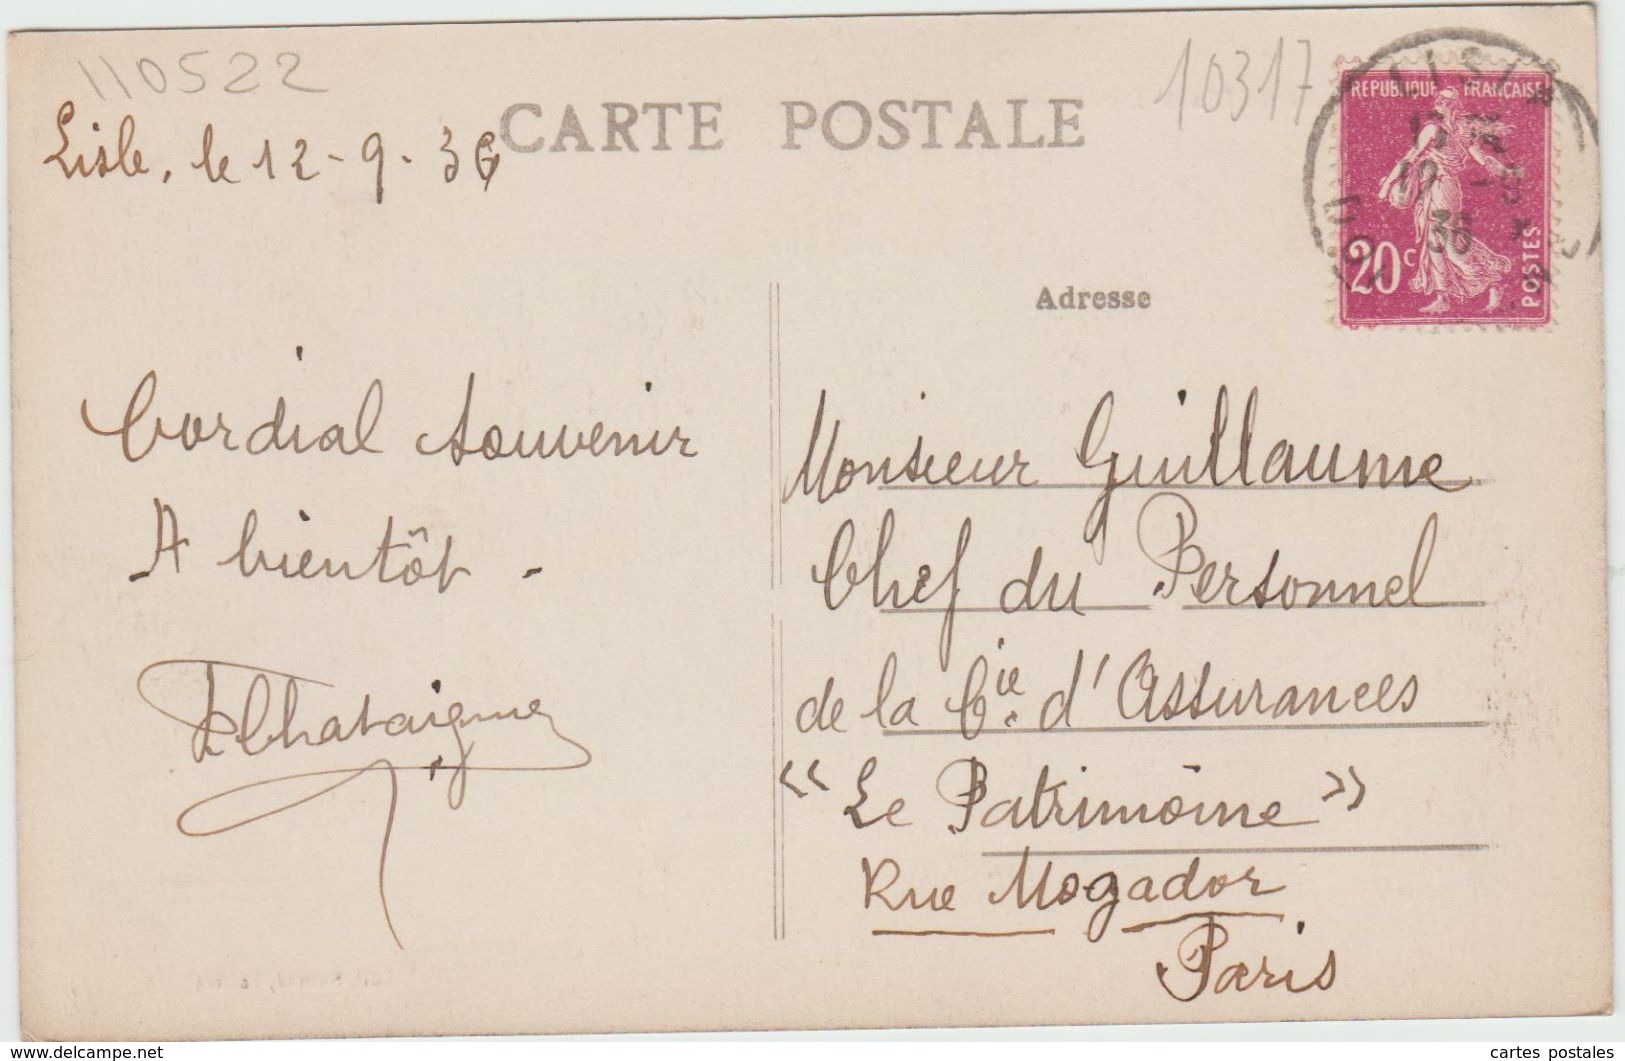 110522
10317
Lisle, le 12-9-36
CARTE POSTALE
REPUBLIQUE FRANÇAISE
20c
POSTES
36
Adresse
Cordial souvenir
A bientôt -
Monsieur Guillaume
Chef du Personnel
de la Cie d'Assurances
"Le Patrimoine"
Rue Mogador
Paris
www.cartes-postales-delcampe.net
cartes postales